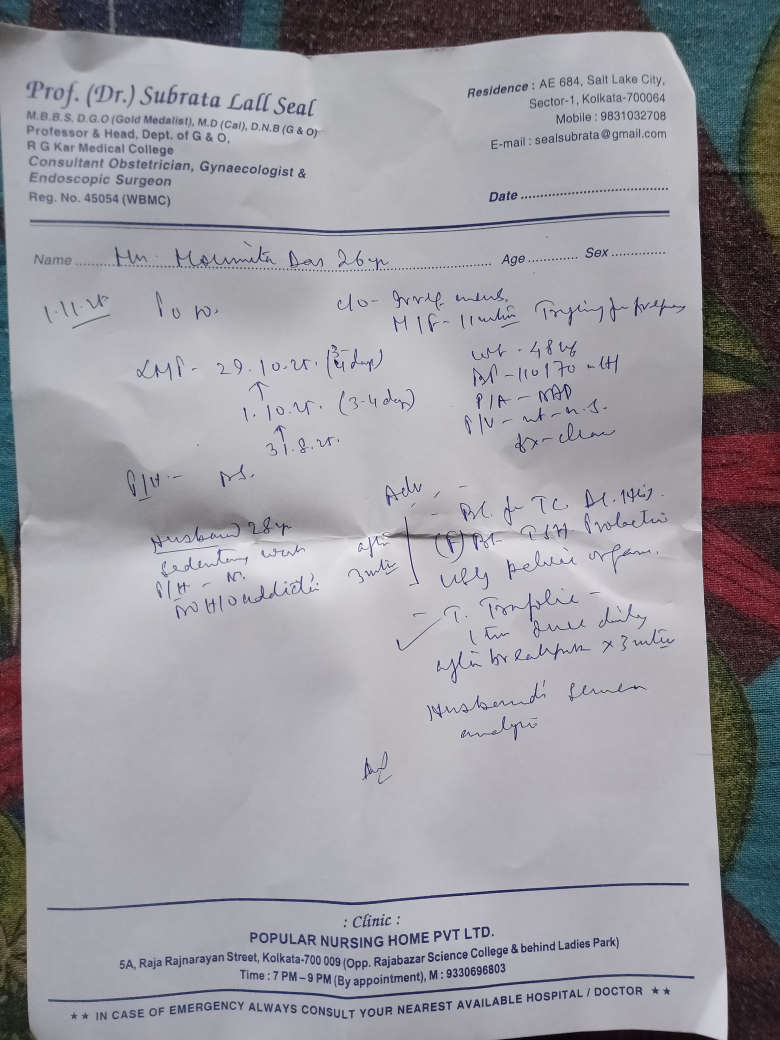 Prof. (Dr.) Subrata Lall Seal
M.B.B.S, D.G.O (Gold Medalist), M.D (Cal), D.N.B (G & O)
Professor & Head, Dept. of G & O,
R G Kar Medical College
Consultant Obstetrician, Gynaecologist &
Endoscopic Surgeon
Reg. No. 45054 (WBMC)
Residence : AE 684, Salt Lake City,
Sector-1, Kolkata-700064
Mobile : 9831032708
E-mail : sealsubrata@gmail.com
Date
Name Moumita Das 26 yr Age Sex
1.11.25 P0+0. c/o - Irreg mens,
M/F - 11 mths Trying for pregnancy
LMP - 29.10.25. (3-4 days)
1.10.25. (3-4 days)
31.8.25.
Wt - 48 kg
BP - 110/70
P/A - NAD
P/V - ut - n.s.
fx - clear
P/H -
Husband 28 yr
Sedentary work
P/H - N.
No H/O addiction
Adv. -
- Bl. for TC DC
(F) Bl. TSH Prolactin
USG pelvic organ.
after
3 mths
- T. -
1 tab once daily
after breakfast x 3 mths
Husband's semen
analysis
: Clinic :
POPULAR NURSING HOME PVT LTD.
5A, Raja Rajnarayan Street, Kolkata-700 009 (Opp. Rajabazar Science College & behind Ladies Park)
Time : 7 PM – 9 PM (By appointment), M : 9330696803
★★ IN CASE OF EMERGENCY ALWAYS CONSULT YOUR NEAREST AVAILABLE HOSPITAL / DOCTOR ★★